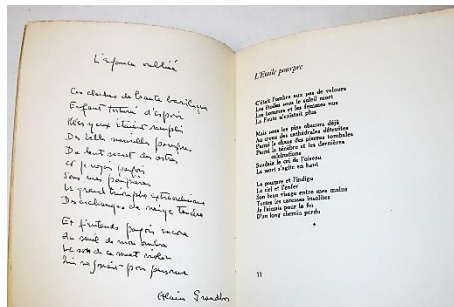 L'enfance oubliée
Ces cloches de haute basilique
Enfant torturé d'espoir
Mes yeux étaient remplis
De belles nouvelles pourpres
Du haut secret des astres
Et je voyais parfois
Sous mes paupières
Le grand triomphe extraordinaire
Des archanges de neige tendre
Et j'entends parfois encore
Au seuil de mon ombre
Le son de ce muet violon
Qui ne jouait pour personne
Alain Grandbois
L'Etoile pourpre
C'était l'ombre aux pas de velours
Les étoiles sous le soleil mort
Les hommes et les femmes nus
La Faute n'existait plus
Mais sous les pins obscurs déjà
Au creux des cathédrales détruites
Parmi le chaos des pierres tombales
Parmi la ténèbre et les dernières
exhumations
Soudain le cri de l'oiseau
La mort s'agite en haut
La pourpre et l'indigo
Le ciel et l'enfer
Son beau visage entre mes mains
Toutes les caresses insolites
Je l'aimais pour la fin
D'un long chemin perdu
*
11